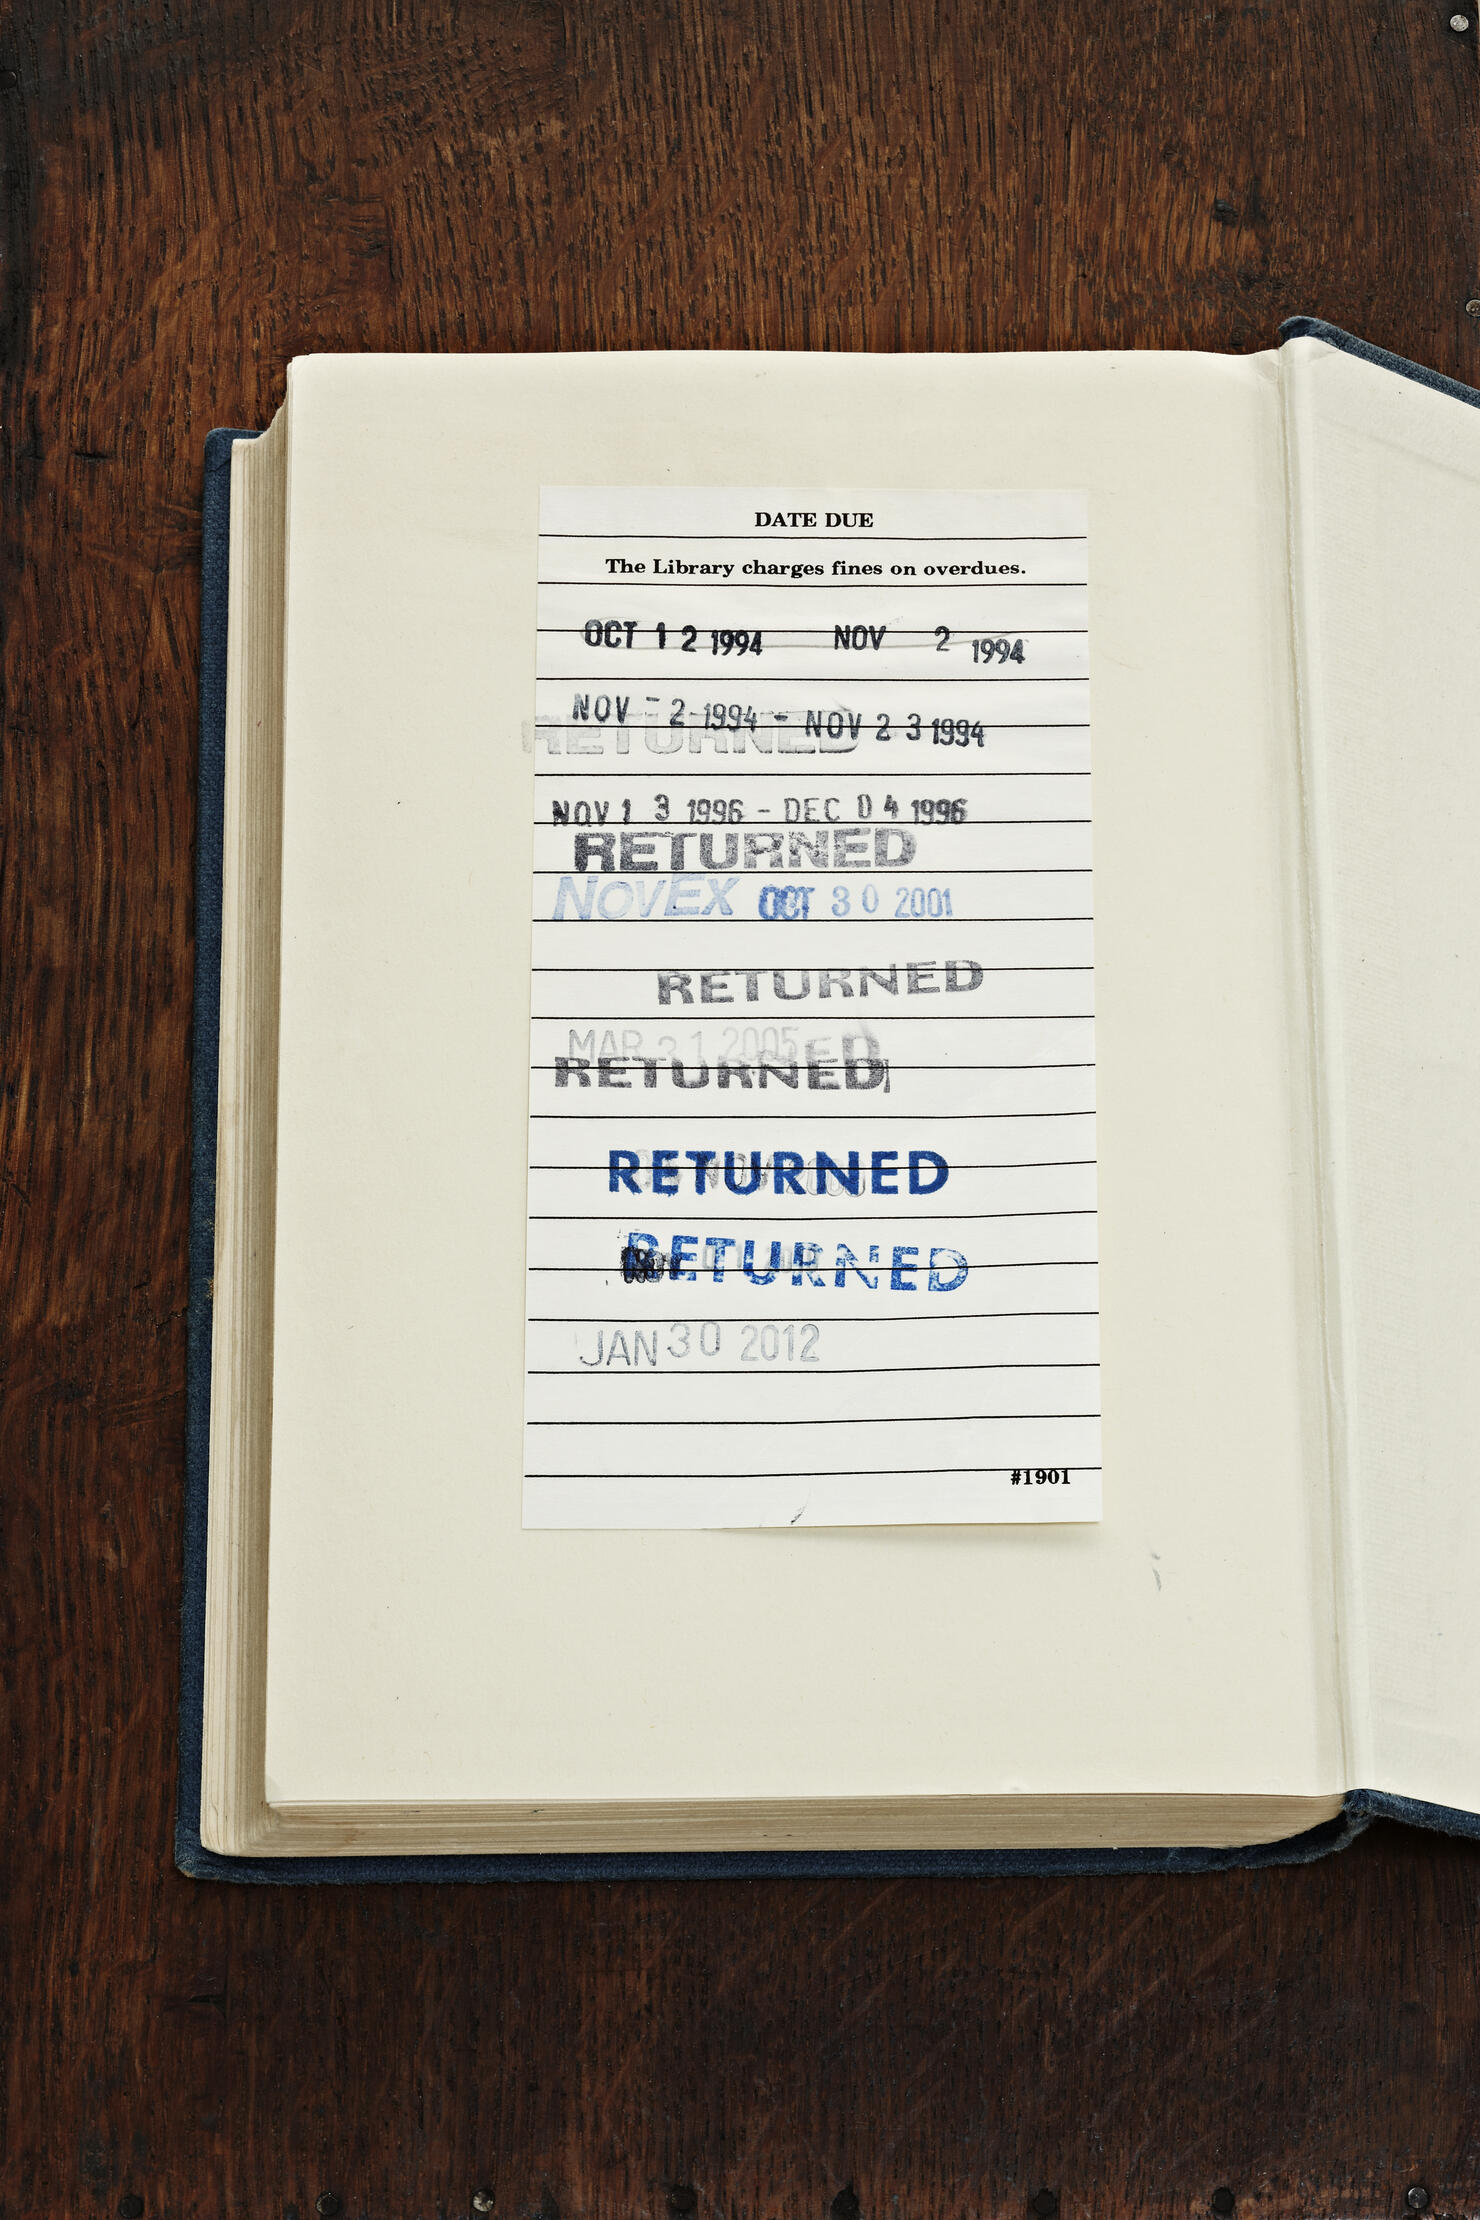 DATE DUE
The Library charges fines on overdues.
OCT 12 1994 NOV 2 1994
NOV - 2 1994 - NOV 23 1994
RETURNED
NOV 13 1996 - DEC 04 1996
RETURNED
NOVEX OCT 30 2001
RETURNED
MAR 31 2005
RETURNED
RETURNED
RETURNED
JAN 30 2012
#1901